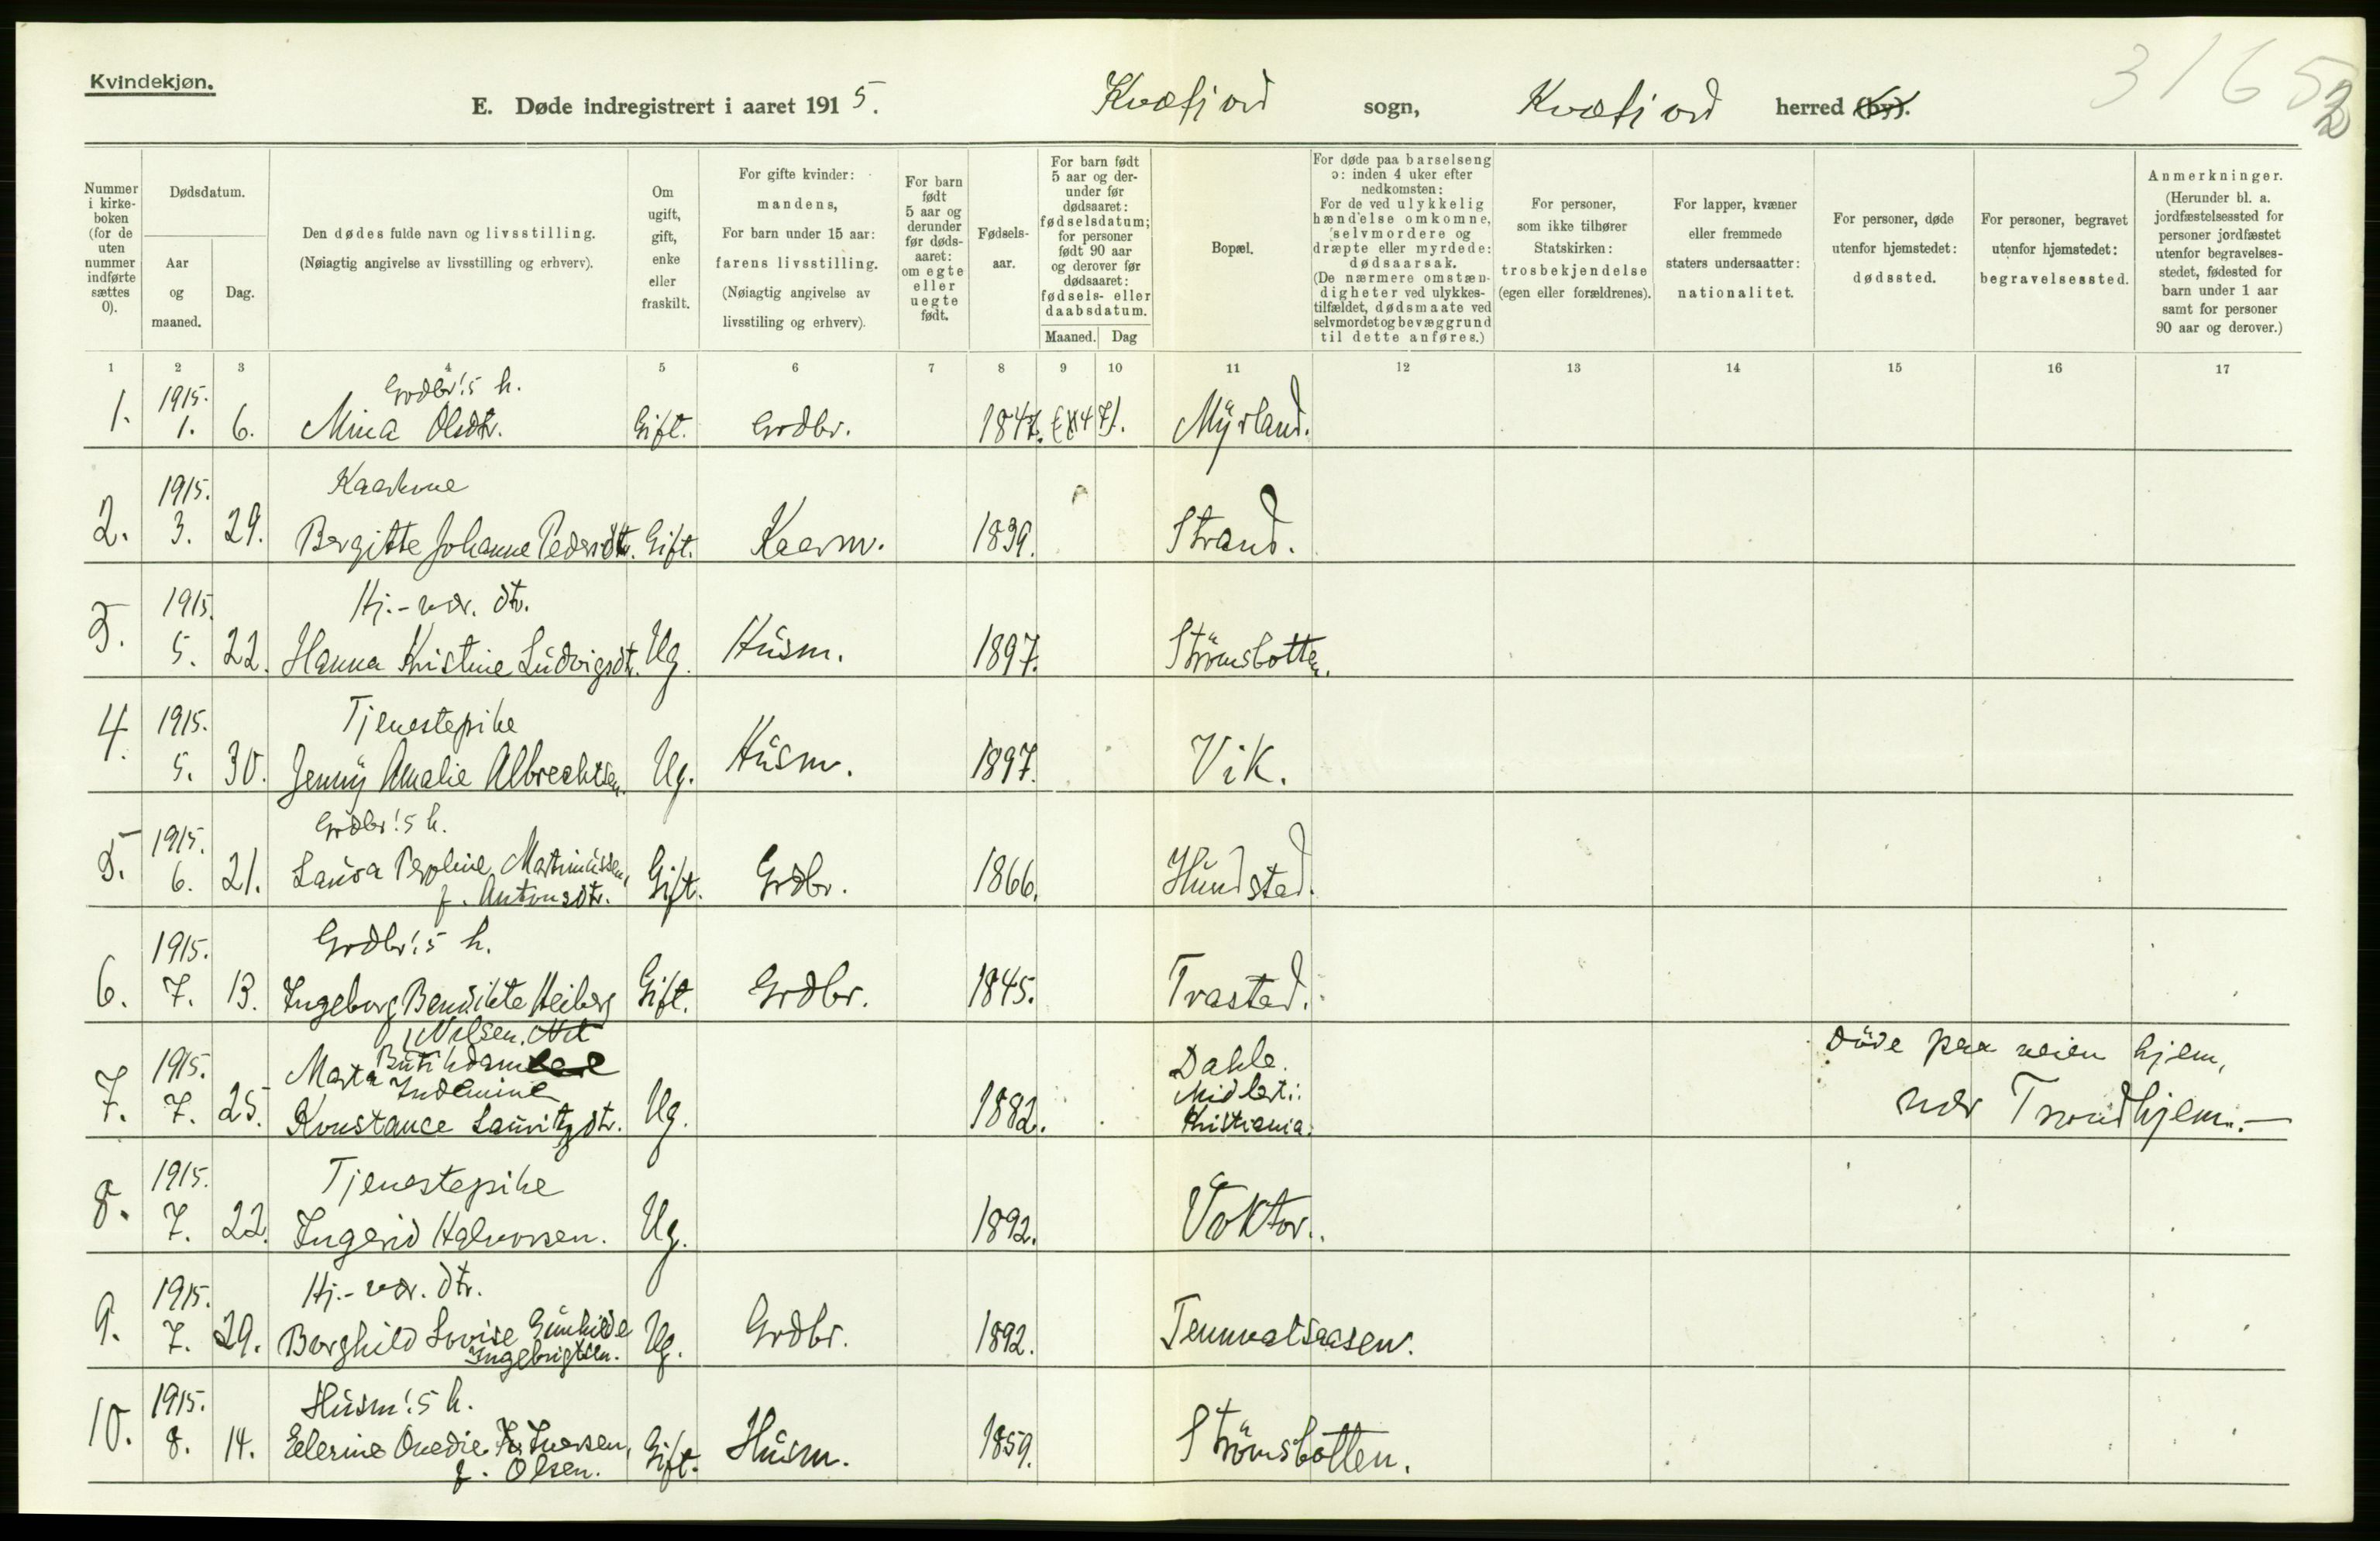 Kvindekjøn.
E. Døde indregistrert i aaret 1915. Kvæfjord sogn, Kvæfjord herred (by).
3165
2
Nummer i kirke-boken (for de uten nummer indførte sættes 0).
Dødsdatum.
Aar og maaned.
Dag.
Den dødes fulde navn og livsstilling.
(Nøiagtig angivelse av livsstilling og erhverv).
Om ugift, gift, enke eller fraskilt.
For gifte kvinder: mandens,
For barn under 15 aar: farens livsstilling.
(Nøiagtig angivelse av livsstiling og erhverv).
For barn født 5 aar og derunder før døds-aaret: om egte eller uegte født.
Fødsels-aar.
For barn født 5 aar og der-under før dødsaaret: fødselsdatum; for personer født 90 aar og derover før dødsaaret: fødsels- eller daabsdatum.
Maaned. Dag
Bopæl.
For døde paa barselseng ɔ: inden 4 uker efter nedkomsten:
For de ved ulykkelig hændelse omkomne, selvmordere og dræpte eller myrdede: dødsaarsak.
(De nærmere omstæn-digheter ved ulykkes-tilfældet, dødsmaate ved selvmordet og bevæggrund til dette anføres.)
For personer, som ikke tilhører Statskirken: trosbekjendelse (egen eller forældrenes).
For lapper, kvæner eller fremmede staters undersaatter: nationalitet.
For personer, døde utenfor hjemstedet: dødssted.
For personer, begravet utenfor hjemstedet: begravelsessted.
Anmerkninger.
(Herunder bl. a. jordfæstelsessted for personer jordfæstet utenfor begravelses-stedet, fødested for barn under 1 aar samt for personer 90 aar og derover.)
1 2 3 4 5 6 7 8 9 10 11 12 13 14 15 16 17
1915. Grdbr!s h.
1. 1. 6. Mina Olsdtr. Gift. Grdbr. 1847. Myrland.
1915. Kaarkone
2. 3. 29. Bergitte Johanne Pedersdtr. Gift. Kaarm. 1839. Strand.
1915. Hj.-vær. dtr.
3. 5. 22. Hanna Kristine Ludvigsdtr. Ug. Husm. 1897. Strömsbotten.
1915. Tjenestepike
4. 5. 30. Jenny Amalie Albrechtsen. Ug. Husm. 1897. Vik.
1915. Grdbr!s h.
5. 6. 21. Laura Peroline Martinussen, Gift. Grdbr. 1866. Hundstad.
f. Antonsdtr.
1915. Grdbr!s h.
6. 7. 13. Ingeborg Bendikte Heiberg Gift. Grdbr. 1845. Trastad.
Nilsen.
1915. Butikdame Dahle. Döde paa veien hjem,
Marta Indemine Midlert.:
7. 7. 25. Konstance Lauritzdtr. Ug. 1882. Kristiania. nær Trondhjem.-
1915. Tjenestepike
8. 7. 22. Ingerid Halvorsen. Ug. 1892. Voktor.
1915. Hj.-vær. dtr.
9. 7. 29. Borghild Lovise Gunhilde Ug. Grdbr. 1892. Tennvatsaasen.
Ingebrigtsen.
1915. Husm!s h.
10. 8. 14. Elerine Onedie Iversen, Gift. Husm. 1859. Strömsbotten.
f. Olsen.